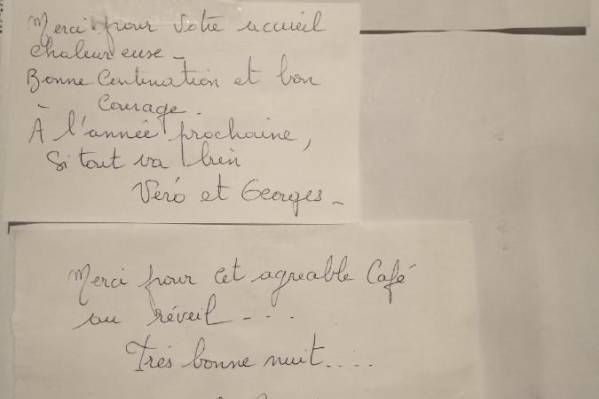 Merci pour votre accueil
chaleureuse -
Bonne Continuation et bon
Courage.
À l'année prochaine,
Si tout va bien
Véro et Georges -
Merci pour cet agreable Café
au réveil - . . .
Trés bonne nuit.....